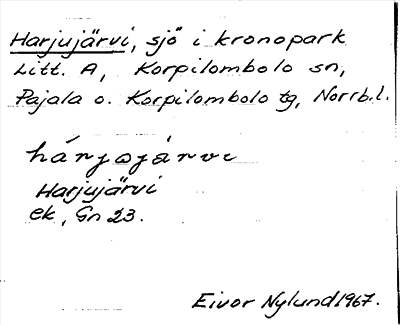 Harjujärvi, sjö i kronopark
Litt. A, Korpilombolo sn,
Pajala o. Korpilombolo tg, Norrb.l.
hárjɷjárvi
Harjujärvi
ek, Gn 23.
Eivor Nylund 1967.